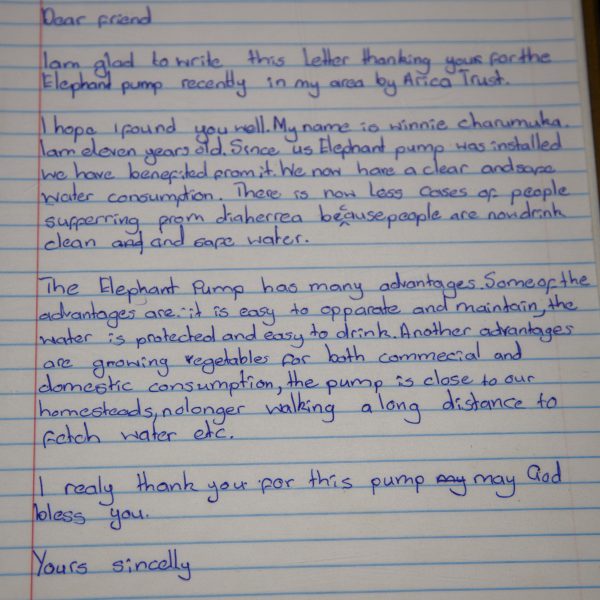 Dear friend
Iam glad to write this Letter thanking your for the
Elephant pump recently in my area by Arica Trust.
I hope i found you well. My name is winnie charumuka.
Iam eleven years old. Since us Elephant pump was installed
we have benefited from it. We now have a clear and safe
water consumption. There is now Less cases of people
supferring from diaherrea because people are now drink
clean and and safe water.
The Elephant Pump has many advantages. Some of the
advantages are:-it is easy to opparate and maintain, the
water is protected and easy to drink. Another advantages
are growing vegetables for both commecial and
domestic consumption, the pump is close to our
homesteads, nolonger walking a long distance to
fetch water etc.
I realy thank you for this pump may may God
bless you.
Yours sincelly